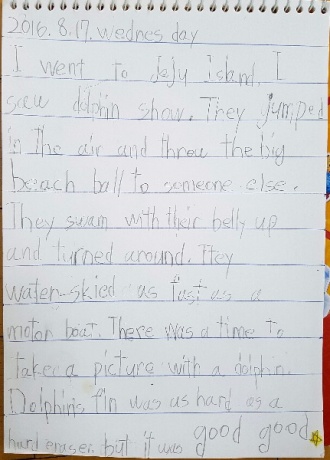 2016. 8.17. wednes day
I went to Jeju Island. I
saw dolphin show. They jumped
in the air and threw the big
beach ball to someone else.
They swam with their belly up
and turned around. They
water-skied as fast as a
motor boat. There was a time to
take a picture with a dolphin.
Dolphin's fin was as hard as a
hard eraser. but it was good good.